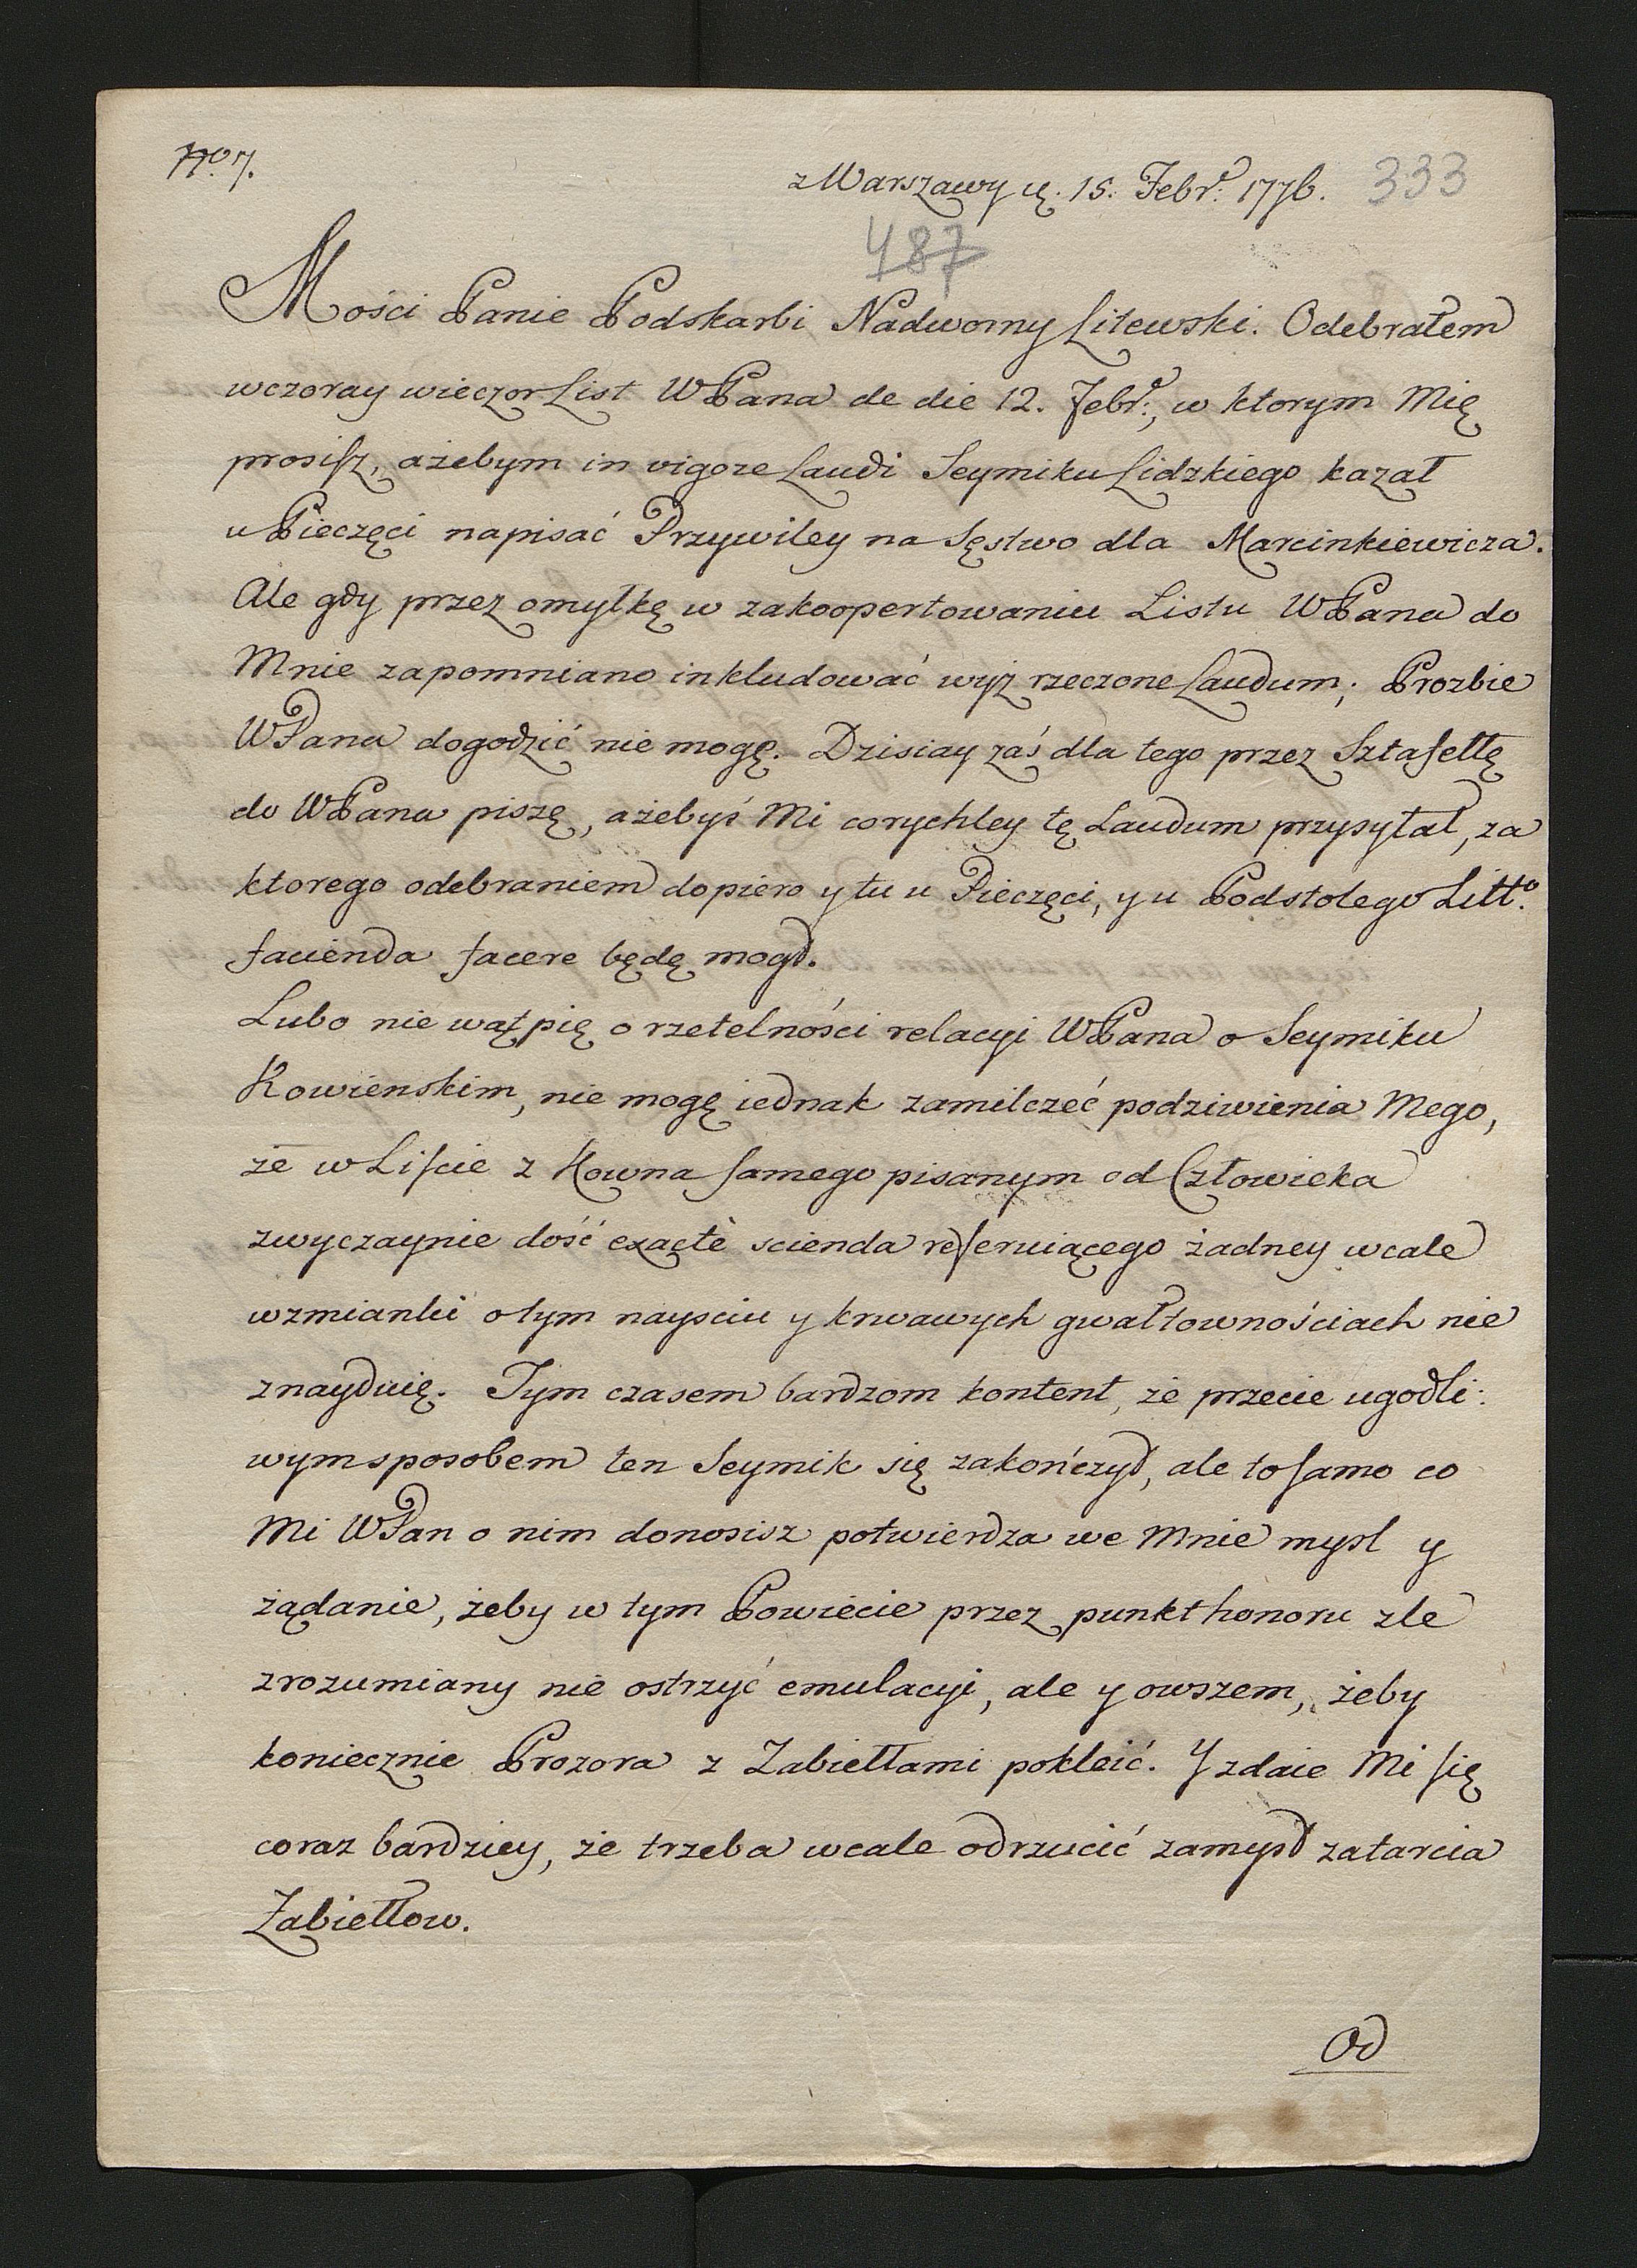 No. 7.
z Warszawy ę. 15. Febr: 1776. 333
487
Mości Panie Podskarbi Nadworny Litewski. Odebrałem
wczoray wieczor List WPana de die 12. Febr:, w ktorym Mię
prosisz, ażebym in vigore Laudi Seymiku Lidzkiego kazał
u Pieczęci napisać Przywiley na Sęstwo dla Marcinkiewicza.
Ale gdy przez omyłkę w zakoopertowaniu Listu WPana do
Mnie zapomniano inkludować wyż rzeczone Laudum; Prozbie
WPana dogodzić nie mogę. Dzisiay zaś dla tego przez Sztafettę
do WPana piszę, ażebyś Mi corychley tę Laudum przysyłał, za
ktorego odebraniem dopiero y tu u Pieczęci, y u Podstolego Litt:o
facienda facere będę mogł.
Lubo nie wątpię o rzetelności relacyi WPana o Seymiku
Kowienskim, nie mogę iednak zamilczeć podziwienia Mego,
że w Liście z Kowna samego pisanym od Człowieka
zwyczaynie dość exactè scienda referuiącego żadney wcale
wzmianki o tym nayściu y krwawych gwałtownościach nie
znayduię. Tym czasem bardzom kontent, że przecie ugodli:
wym sposobem ten Seymik się zakończył, ale to samo co
Mi WPan o nim donosisz potwierdza we Mnie mysl y
żądanie, żeby w tym Powiecie przez punkt honoru zle
zrozumiany nie ostrzyć emulacyi, ale y owszem, żeby
koniecznie Prozora z Zabiełłami pokleić. Y zdaie Mi się
coraz bardziey, że trzeba wcale odrzucić zamysł zatarcia
Zabiełłow.
Od